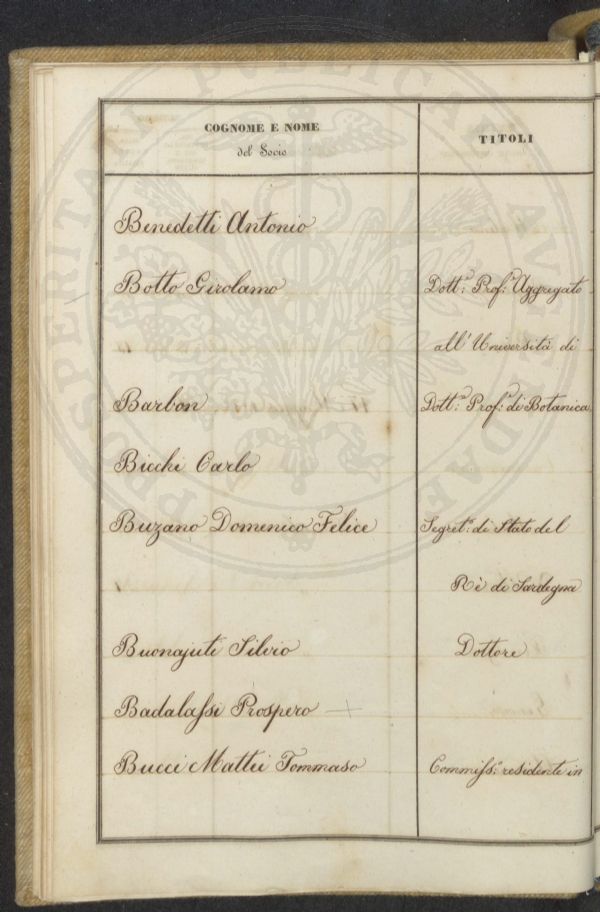 COGNOME E NOME
del Socio
TITOLI
Benedetti Antonio
Botto Girolamo
Dott.e Prof.e Aggregato
all' Università di
Barbon
Dott.e Prof.e di Botanica
Bicchi Carlo
Buzano Domenico Felice
Segret.o di Stato del
Rè di Sardegna
Buonajuti Silvio
Dottore
Badalassi Prospero
Bucci Mattii Tommaso
Commiss.o residente in
PROSPERITATI PUBLICAE AUGENDAE